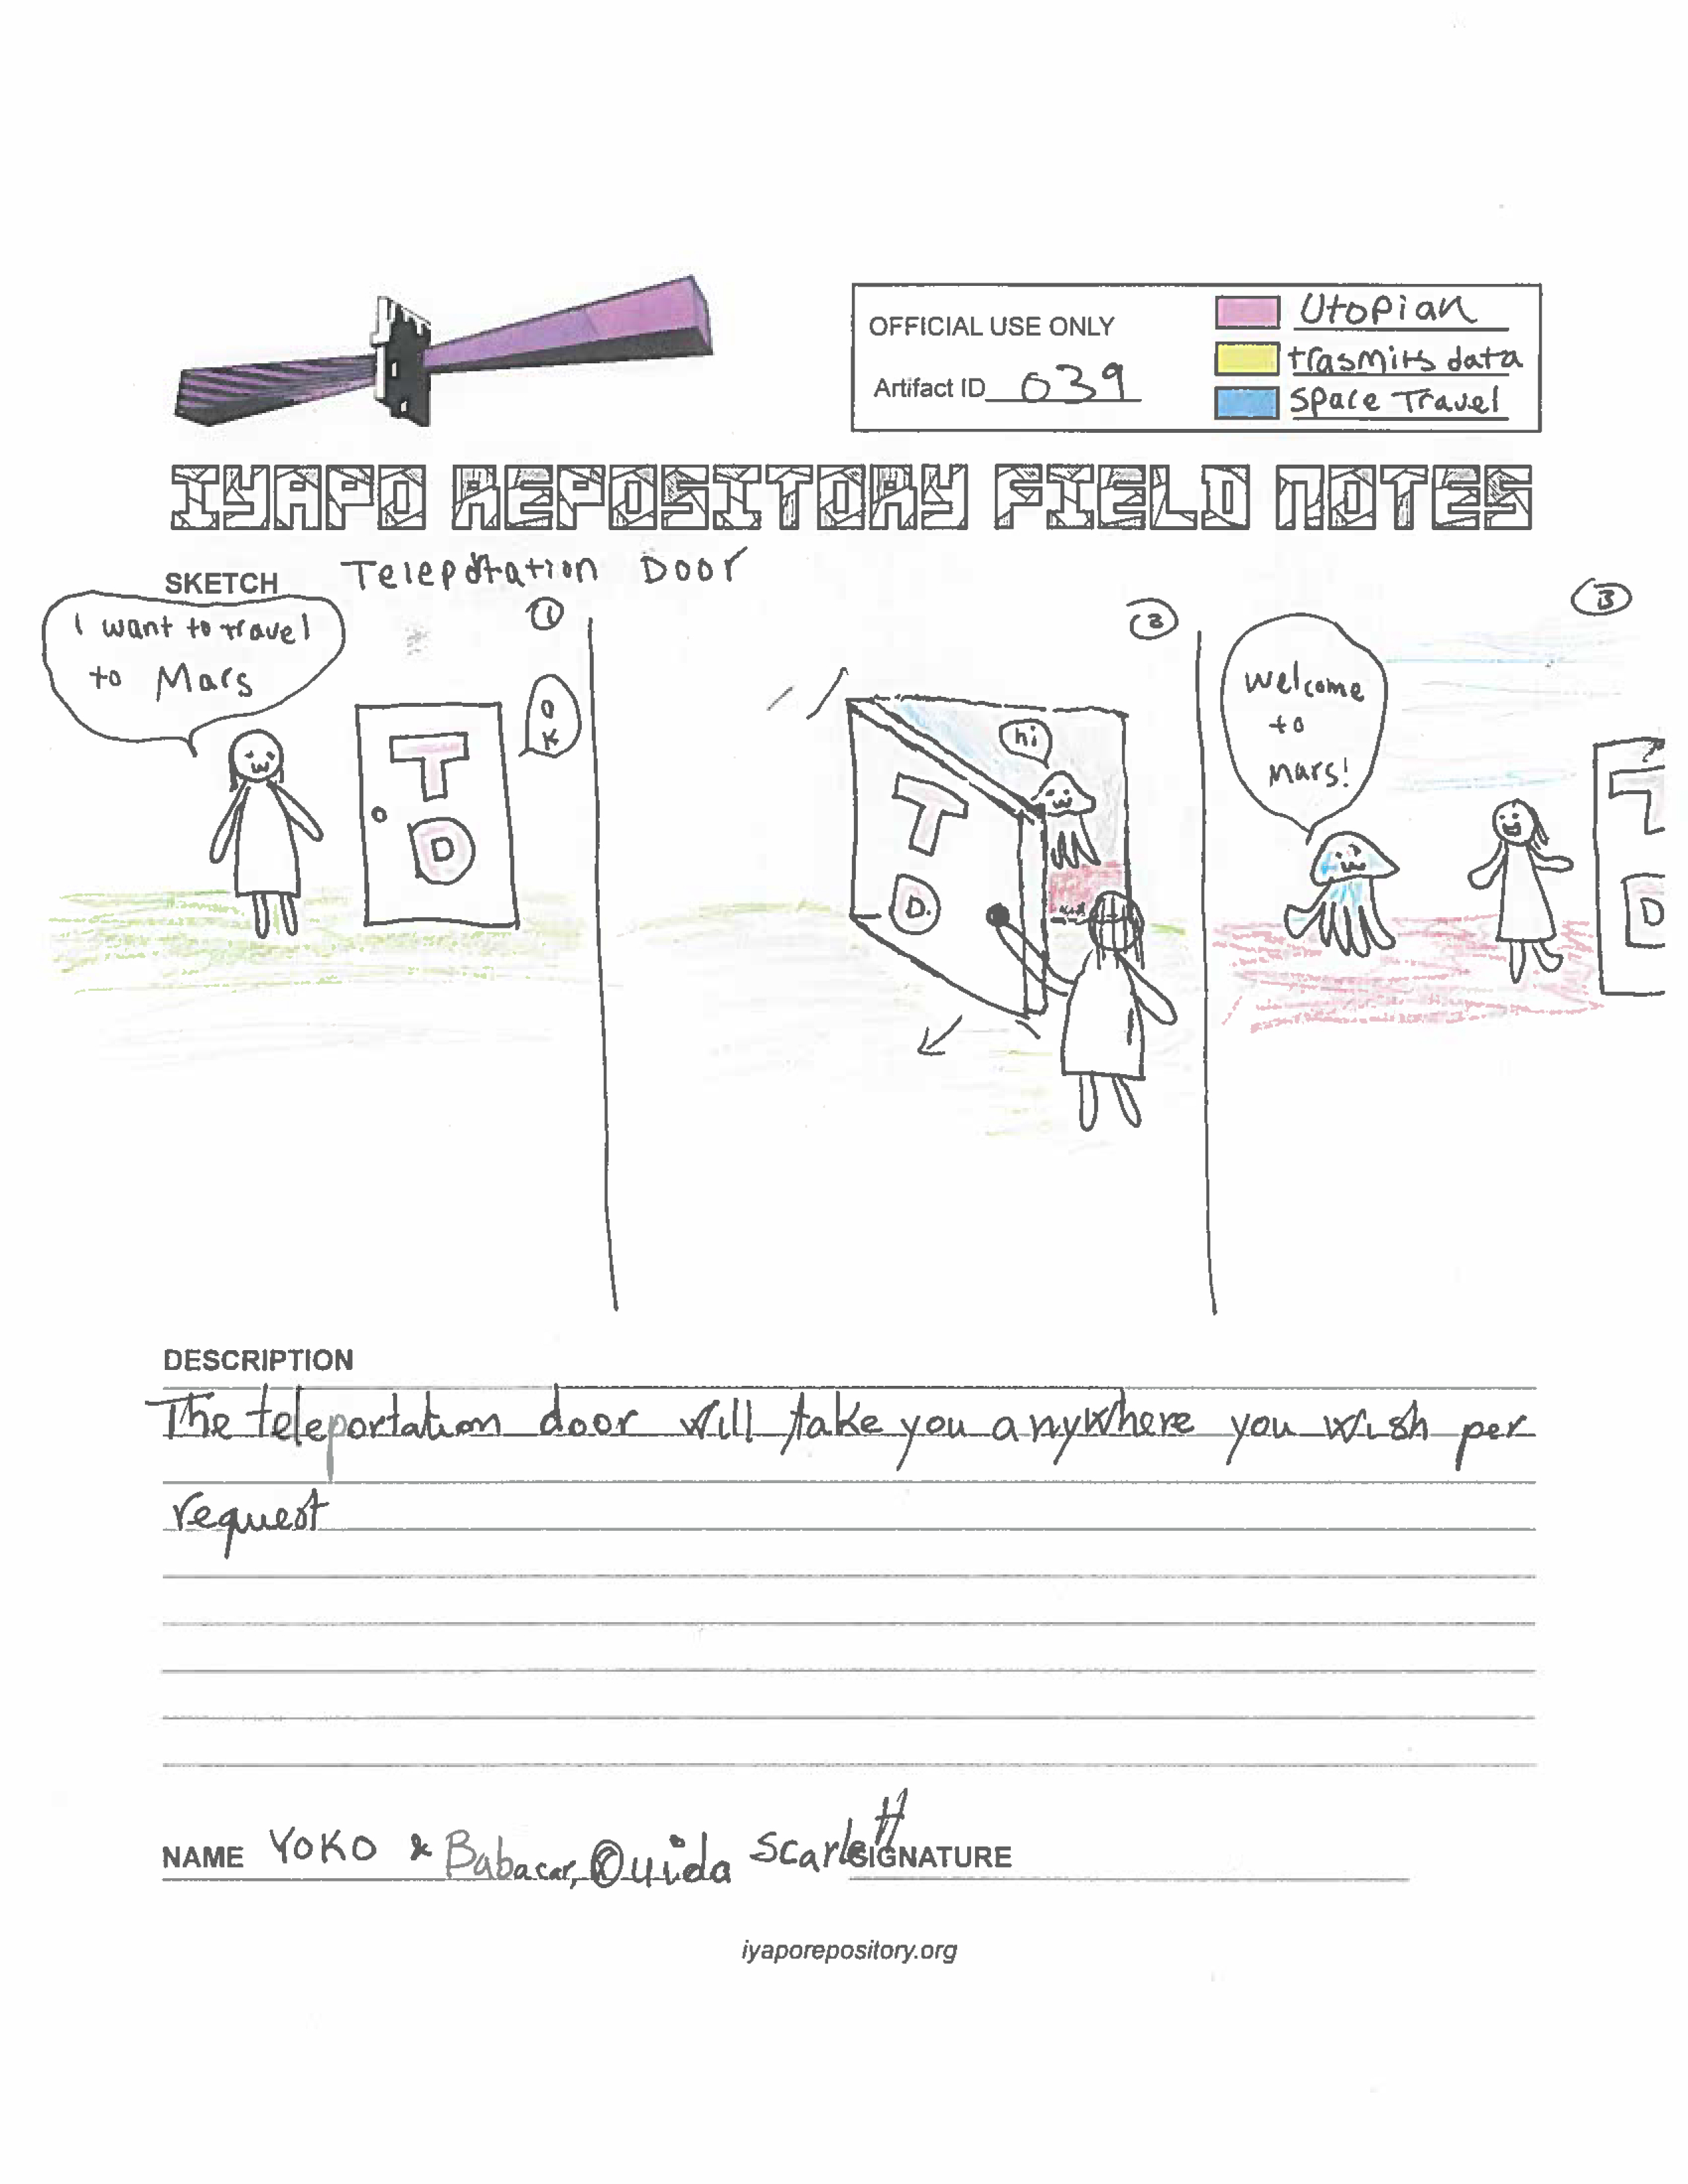 OFFICIAL USE ONLY
Artifact ID 039
Utopian
trasmits data
Space Travel
IYAPO REPOSITORY FIELD NOTES
SKETCH Teleportation Door
1
I want to travel
to Mars
O
K
T
D
2
hi
T
D
3
Welcome
to
Mars!
T
D
DESCRIPTION
The teleportation door will take you anywhere you wish per
request
NAME YOKO & Babacar, Ouida Scarlett SIGNATURE
iyaporepository.org